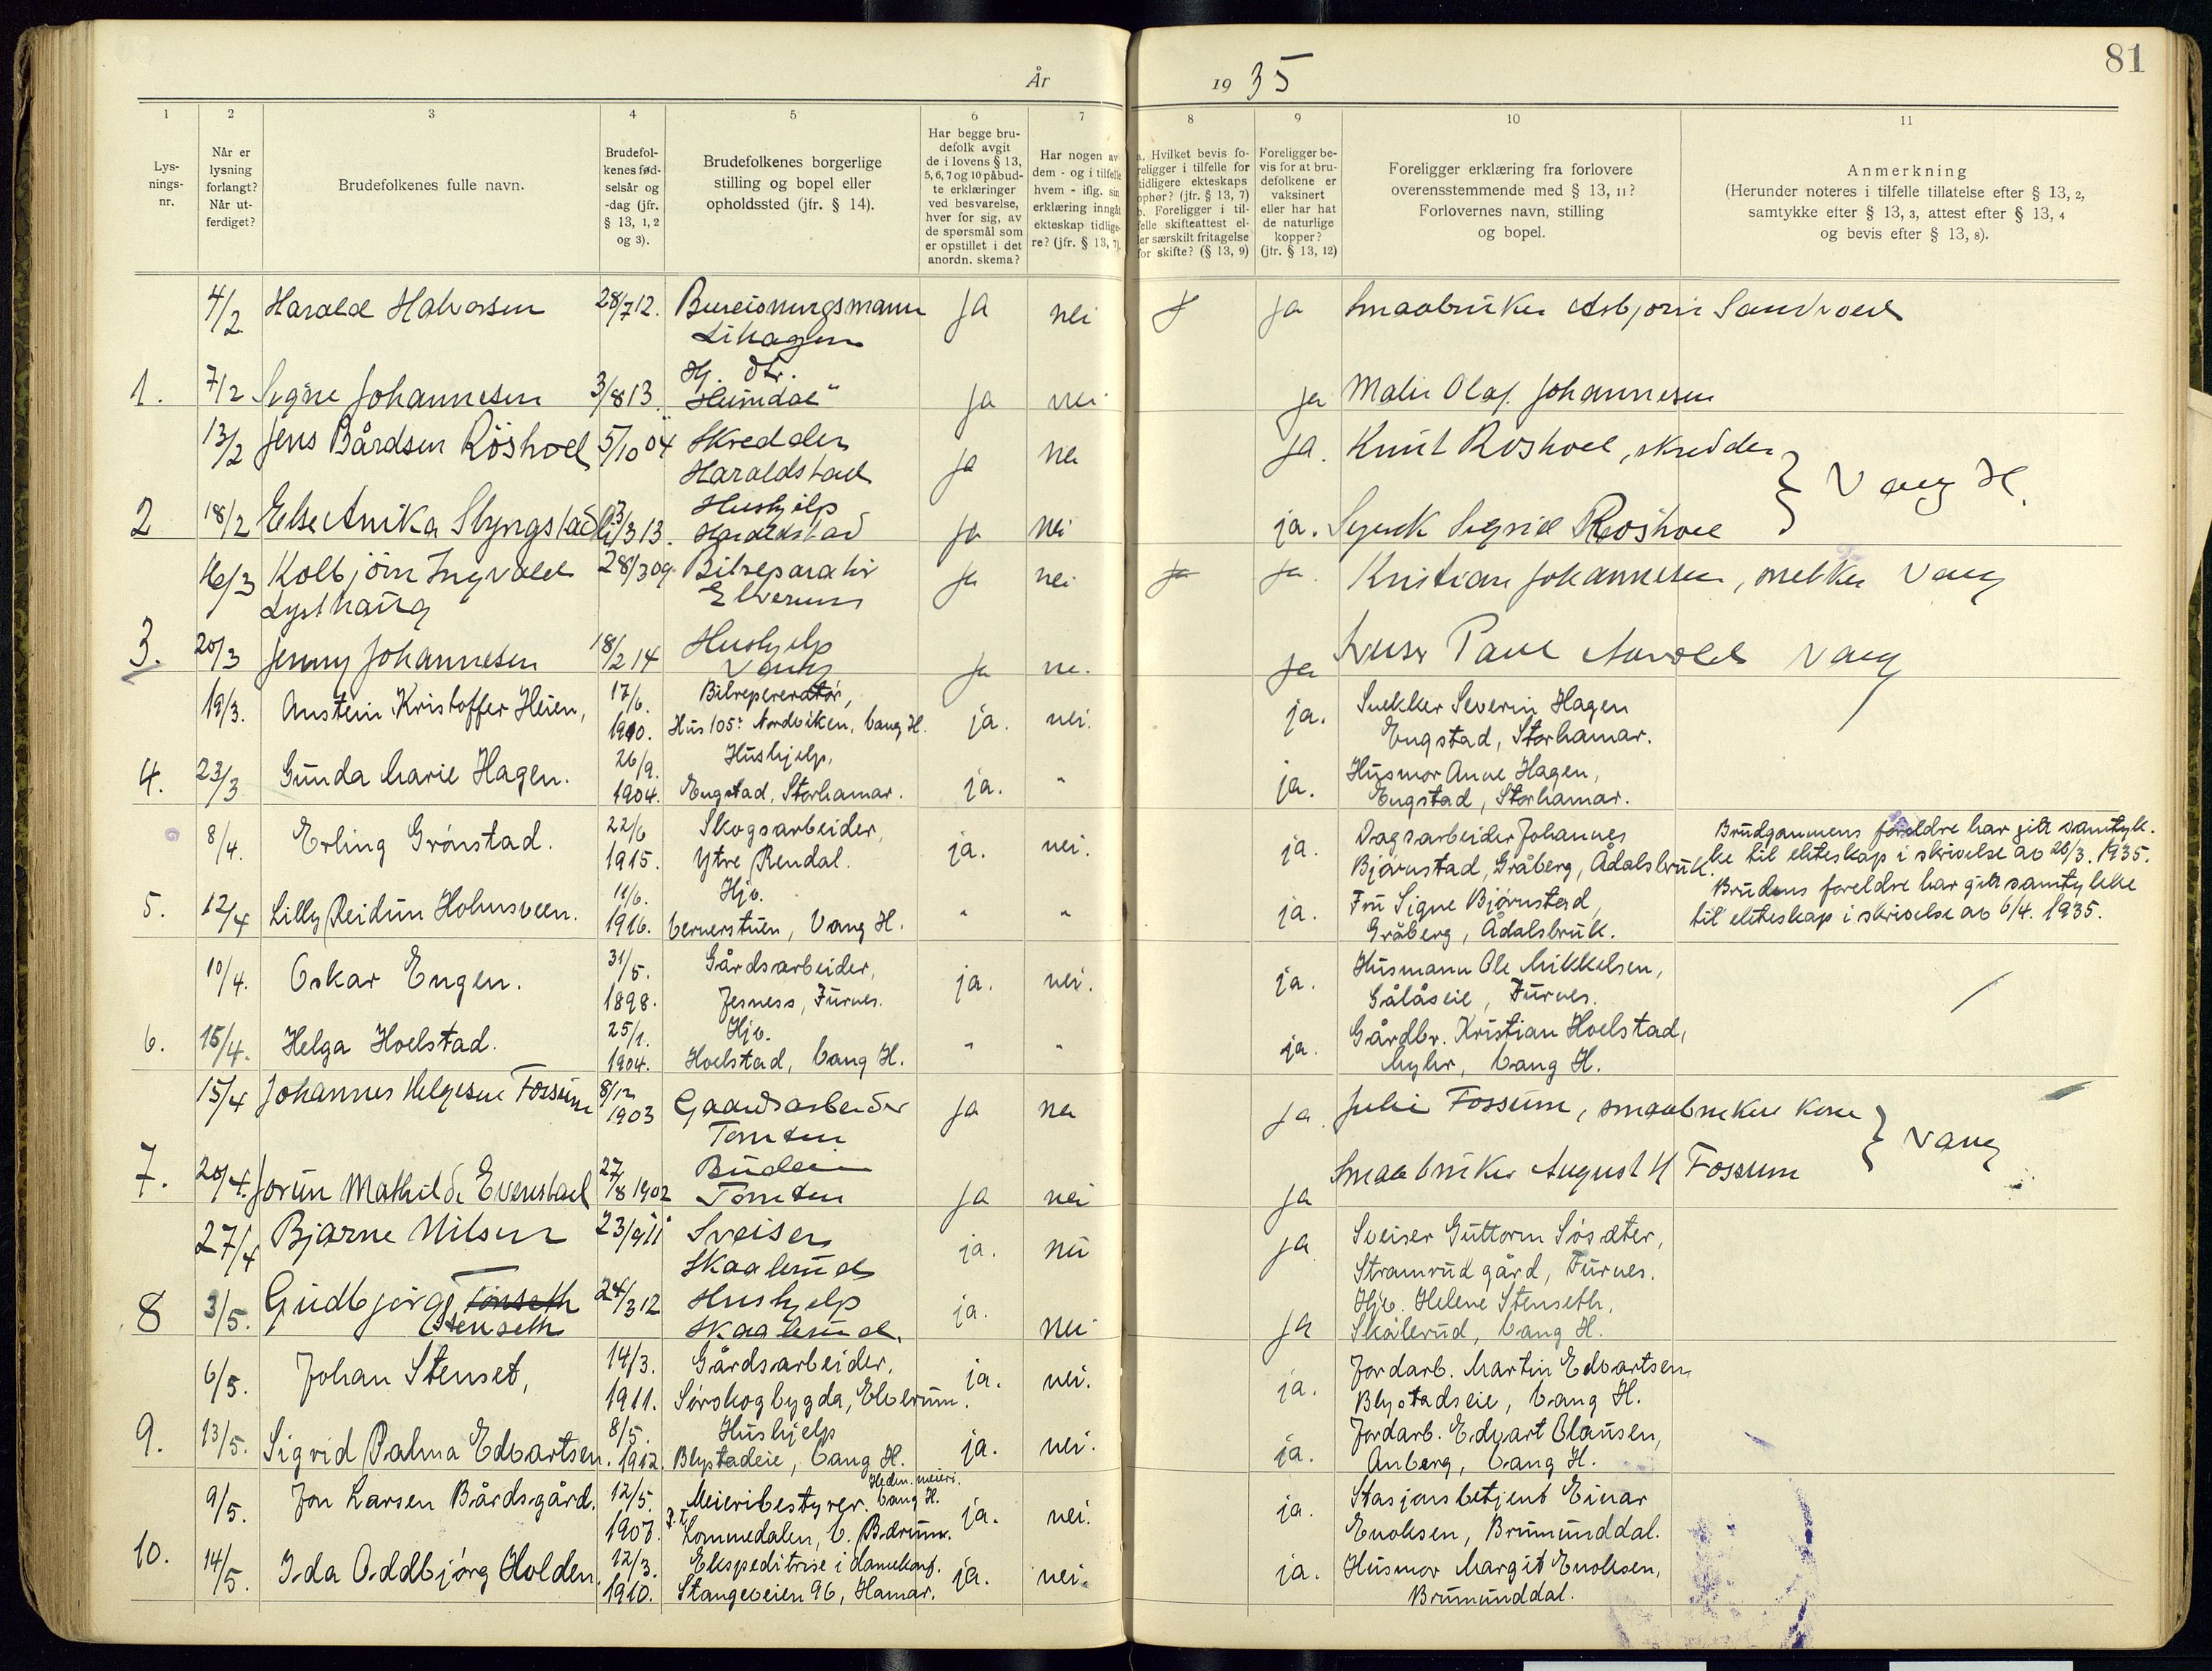 81
År 1935
1
2
3
4
5
6
7
8
9
10
11
Lys-
nings-
nr.
Når er
lysning
forlangt?
Når ut-
ferdiget?
Brudefolkenes fulle navn.
Brudefol-
kenes fød-
selsår og
-dag (jfr.
§ 13, 1, 2
og 3).
Brudefolkenes borgerlige
stilling og bopel eller
opholdssted (jfr. § 14).
Har begge bru-
defolk avgit
de i lovens § 13,
5, 6, 7 og 10 påbud-
te erklæringer
ved besvarelse,
hver for sig, av
de spørsmål som
er opstillet i det
anordn. skema?
Har nogen av
dem - og i tilfelle
hvem - iflg. sin
erklæring inngåt
ekteskap tidlige-
re? (jfr. § 13, 7)
a. Hvilket bevis fo-
religger i tilfelle for
tidligere ekteskaps
ophør? (jfr. § 13, 7)
b. Foreligger i til-
felle skifteattest el-
ler særskilt fritagelse
for skifte? (§ 13, 9)
Foreligger be-
vis for at bru-
defolkene er
vaksinert
eller har hat
de naturlige
kopper?
(jfr. § 13, 12)
Foreligger erklæring fra forlovere
overensstemmende med § 13, 11?
Forlovernes navn, stilling
og bopel.
Anmerkning
(Herunder noteres i tilfelle tillatelse efter § 13, 2,
samtykke efter § 13, 3, attest efter § 13, 4
og bevis efter § 13, 8).
4/2 Harald Halvorsen 28/7 12. Bureisningsmann ja nei ja Smaabruker Asbjørn Sandvold
Lihagen
Hj. dtr.
1. 7/2 Signe Johannesen 3/8 13. "Heimdal" ja nei ja Maler Olaf Johannesen
13/2 Jens Bårdsen Röshoel 5/10 04 Skredder ja nei ja. Knut Roshoel, skredder
Haraldstad
} Vang H.
Hushjelp
2 18/2 Else Anika Slyngstadli 3/3 13. Haraldstad ja nei ja. Sigrid Roshoel
16/3 Kolbjörn Ingvald 28/3 09. Bilreparatör ja nei ja ja. Kristian Johannesen, melker Vang
Lysthaug Elverum
3. 20/3 Jenny Johannesen 18/2 14 Hushjelp ja nei ja Paul Vang
Vang
19/3. Austein Kristoffer Heien, 17/6. Bilrepereratør, ja. nei. ja. Snekker Severin Hagen
1910. Hus 105: Nordviken, Vang H. Engstad, Storhamar.
4. 23/3 Gunda Marie Hagen. 26/9. Hushjelp, ja. " ja. Husmor Anne Hagen,
1904. Engstad, Storhamar. Engstad, Storhamar.
8/4. Erling Grønstad. 22/6 Skogsarbeider, ja. nei. ja. Dagsarbeider Johannes Brudgommens foreldre har gitt samtyk-
1915. Ytre Rendal. Bjørnstad, Gråberg, Ådalsbruk. ke til ekteskap i skrivelse av 28/3. 1935.
5. 12/4 Lilly Reidun Holmsveen. 11/6. Hjv. " " ja. Fru Signe Bjørnstad, Brudens foreldre har gitt samtykke
1916. Vernerstuen, Vang H. Gråberg, Ådalsbruk. til ekteskap i skrivelse av 6/4. 1935.
10/4. Oskar Engen. 31/5. Gårdsarbeider, ja. nei. ja. Husmann Ole Mikkelsen,
1898. Jesness, Furnes. Gålåseie, Furnes.
6. 15/4. Helga Hoelstad. 25/1. Hjv. " " ja. Gårdbr. Kristian Hoelstad,
1904. Hoelstad, Vang H. Myhr, Vang H.
15/4 Johannes Helgesen Fossum 8/12 1903 Gaardsarbeider ja nei ja. Julie Fossum, smaabruker kone
Tomten
} Vang
Budeie
7. 20/4. Jorun Mathilde Evenstad 27/8 1902 Tomten ja nei ja Smaabruker August H Fossum
27/4 Bjarne Nilsen 23/9 11 Sveiser ja. nei ja Sveiser Guttorm Søsæter,
Skaalerud Stramrud gård, Furnes.
8 3/5. Gudbjørg Tönseth 24/3 12 Hushjelp ja. nei ja Hjv. Helene Stenseth,
Stenseth Skaalerud. Skålerud, Vang H.
6/5. Johan Stenset, 14/3. Gårdsarbeider, ja. nei. ja. Jordarb. Martin Edvartsen,
1911. Sørskogbygda, Elverum. Blystadseie, Vang H.
9. 13/5. Sigrid Palma Edvartsen. 8/5. Hushjelp ja. nei. ja. Jordarb. Edvart Olausen,
1912. Blystadeie, Vang H. Anberg, Vang H.
Hedm. meieri.
9/5. Jon Larsen Bårdsgård. 12/5. Meieribestyrer. Vang H. ja. nei. ja. Stasjonsbetjent Einar
1907. p.t. Lommedalen, V. Bærum. Enoksen, Brumunddal.
10. 14/5. Ida Oddbjørg Holden. 12/3. Ekspeditrise i damekonf. ja. nei. ja. Husmor Margit Enoksen,
1910. Stangeveien 96, Hamar. Brumunddal.